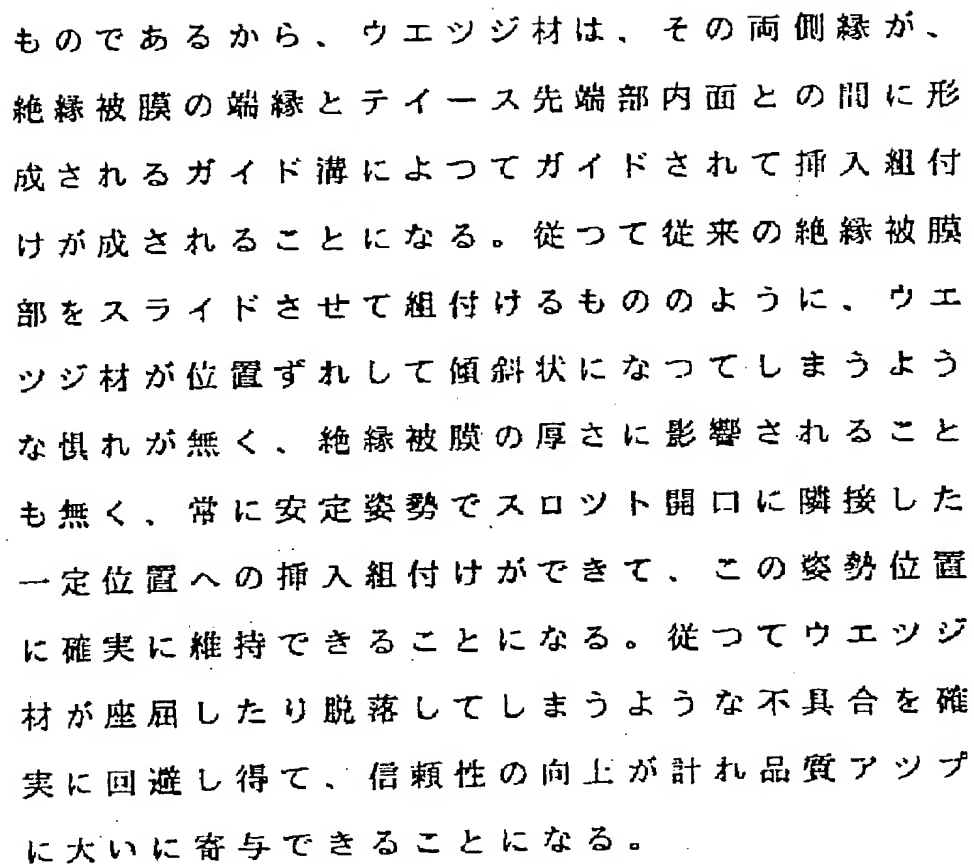 ものであるから、ウエツジ材は、その両側縁が、
絶縁被膜の端縁とテイース先端部内面との間に形
成されるガイド溝によつてガイドされて挿入組付
けが成されることになる。従つて従来の絶縁被膜
部をスライドさせて組付けるもののように、ウエ
ツジ材が位置ずれして傾斜状になつてしまうよう
な惧れが無く、絶縁被膜の厚さに影響されること
も無く、常に安定姿勢でスロツト開口に隣接した
一定位置への挿入組付けができて、この姿勢位置
に確実に維持できることになる。従つてウエツジ
材が座屈したり脱落してしまうような不具合を確
実に回避し得て、信頼性の向上が計れ品質アツプ
に大いに寄与できることになる。